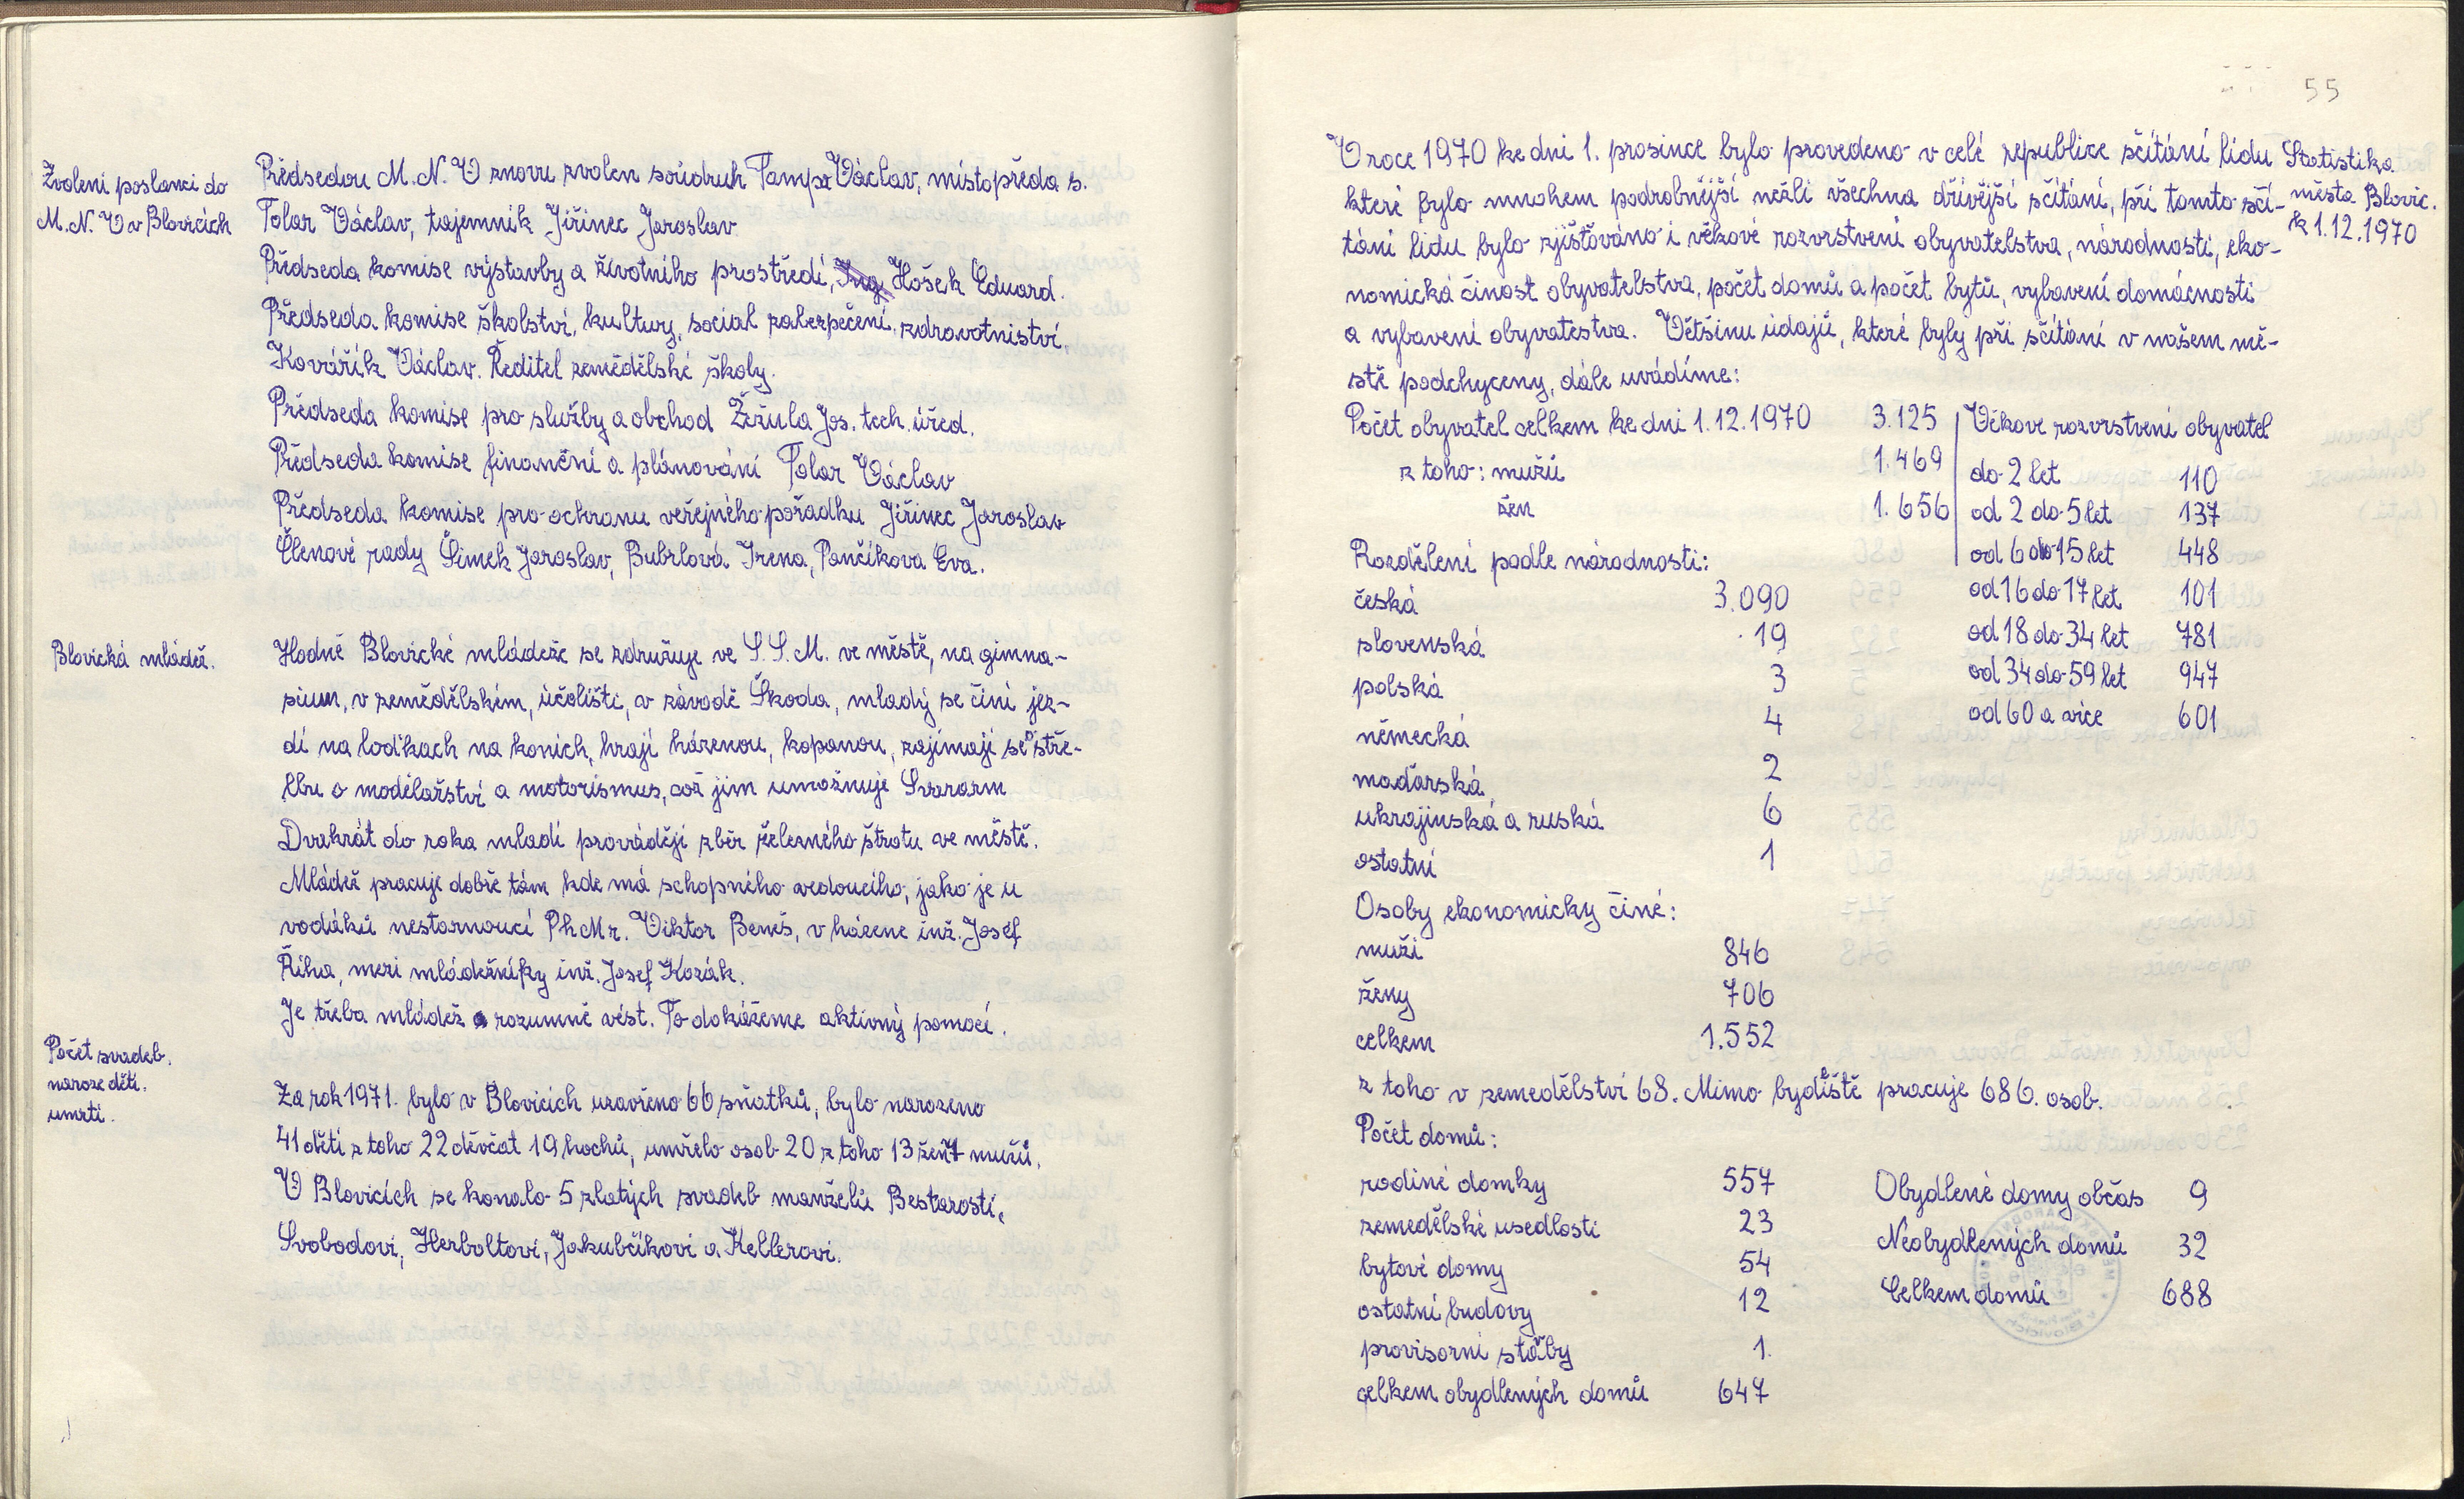 Zvolení poslanci do
M.N.V v Blovicích
Předsedou M.N.V znovu zvolen soudruh Tampa Václav, místopředa s.
Tolar Václav, tajemník Jiřinec Jaroslav
Předseda komise výstavby a životního prostředí, Ing. Hošek Eduard.
Předseda komise školství, kultury, social zabezpečení, zdravotnictví,
Kovářík Václav. Ředitel zemědělské školy.
Předseda komise pro služby a obchod Žežula Jos. tech. úřed.
Předseda komise finanční a plánování Tolar Václav
Předseda komise pro ochranu veřejného pořádku Jiřinec Jaroslav
Členové rady Šimek Jaroslav, Bubrlová Irena, Pančíkova Eva.
Blovická mládež.
Hodně Blovické mládeže se združuje ve S.S.M. ve městě, na gimna-
sium, v zemědělském, účolišti, a v závodě Škoda, mladý se činí jez-
dí na loďkach na konich, hrají házenou, kopanou, zajímají se o stře-
lbu o modelařství a motorismus, což jim umožnuje Svazarm
Dvakrát do roka mladí provádějí zběr železného štrotu ve městě.
Mládež pracuje dobře tám kde má schopného vedoucího, jako je u
vodáků nestarnoucí PhMr. Viktor Beneš, v házene inž. Josef
Říha, mezi mládežníky inž. Josef Kozák.
Je třeba mládež rozumně vést. To dokážeme aktivný pomocí.
Počet svadeb.
naroze dětí.
umrtí.
Za rok 1971. bylo v Blovicích uzavřeno 66 sňatků, bylo narozeno
41 dětí z toho 22 děvčat 19 hochů, umřelo osob 20 z toho 13 žen 7 mužů.
V Blovicích se konalo 5 zlatých svadeb manželů Bestarostí,
Svobodovi, Herboltovi, Jakubčíkovi a Kellerovi.
55
Statistika
města Blovic.
k 1.12.1970
V roce 1970 ke dni 1. prosince bylo provedeno v celé republice sčítání lidu
které bylo mnohem podrobnější nežli všechna dřívější sčítání, při tomto sčí-
tání lidu bylo zjišťováno i věkové rozvrstvení obyvatelstva, národnosti, eko-
nomická činost obyvatelstva, počet domů a počet bytů, vybavení domácnosti
a vybavení obyvatestva. Většinu údajů, které byly při sčítání v našem mě-
stě podchyceny, dále uvádíme:
Počet obyvatel celkem ke dni 1.12.1970 3.125
z toho: mužů 1.469
žen 1.656
Věkove rozvrstvení obyvatel
do 2 let 110
od 2 do 5 let 137
od 6 do 15 let 448
od 16 do 17 let 101
od 18 do 34 let 781
od 34 do 59 let 947
od 60 a více 601
Rozdělení podle národnosti:
česká 3.090
slovenská 19
polská 3
německá 4
maďarská 2
ukrajinská a ruská 6
ostatní 1
Osoby ekonomicky činé:
muži 846
ženy 706
celkem 1.552
z toho v zemedělství 68. Mimo bydliště pracuje 686. osob.
Počet domů:
rodiné domky 557
zemedělské usedlosti 23
bytové domy 54
ostatní budovy 12
provisorní stavby 1.
celkem obydlených domů 647
Obydlené domy občas 9
Neobydlených domů 32
Celkem domů 688